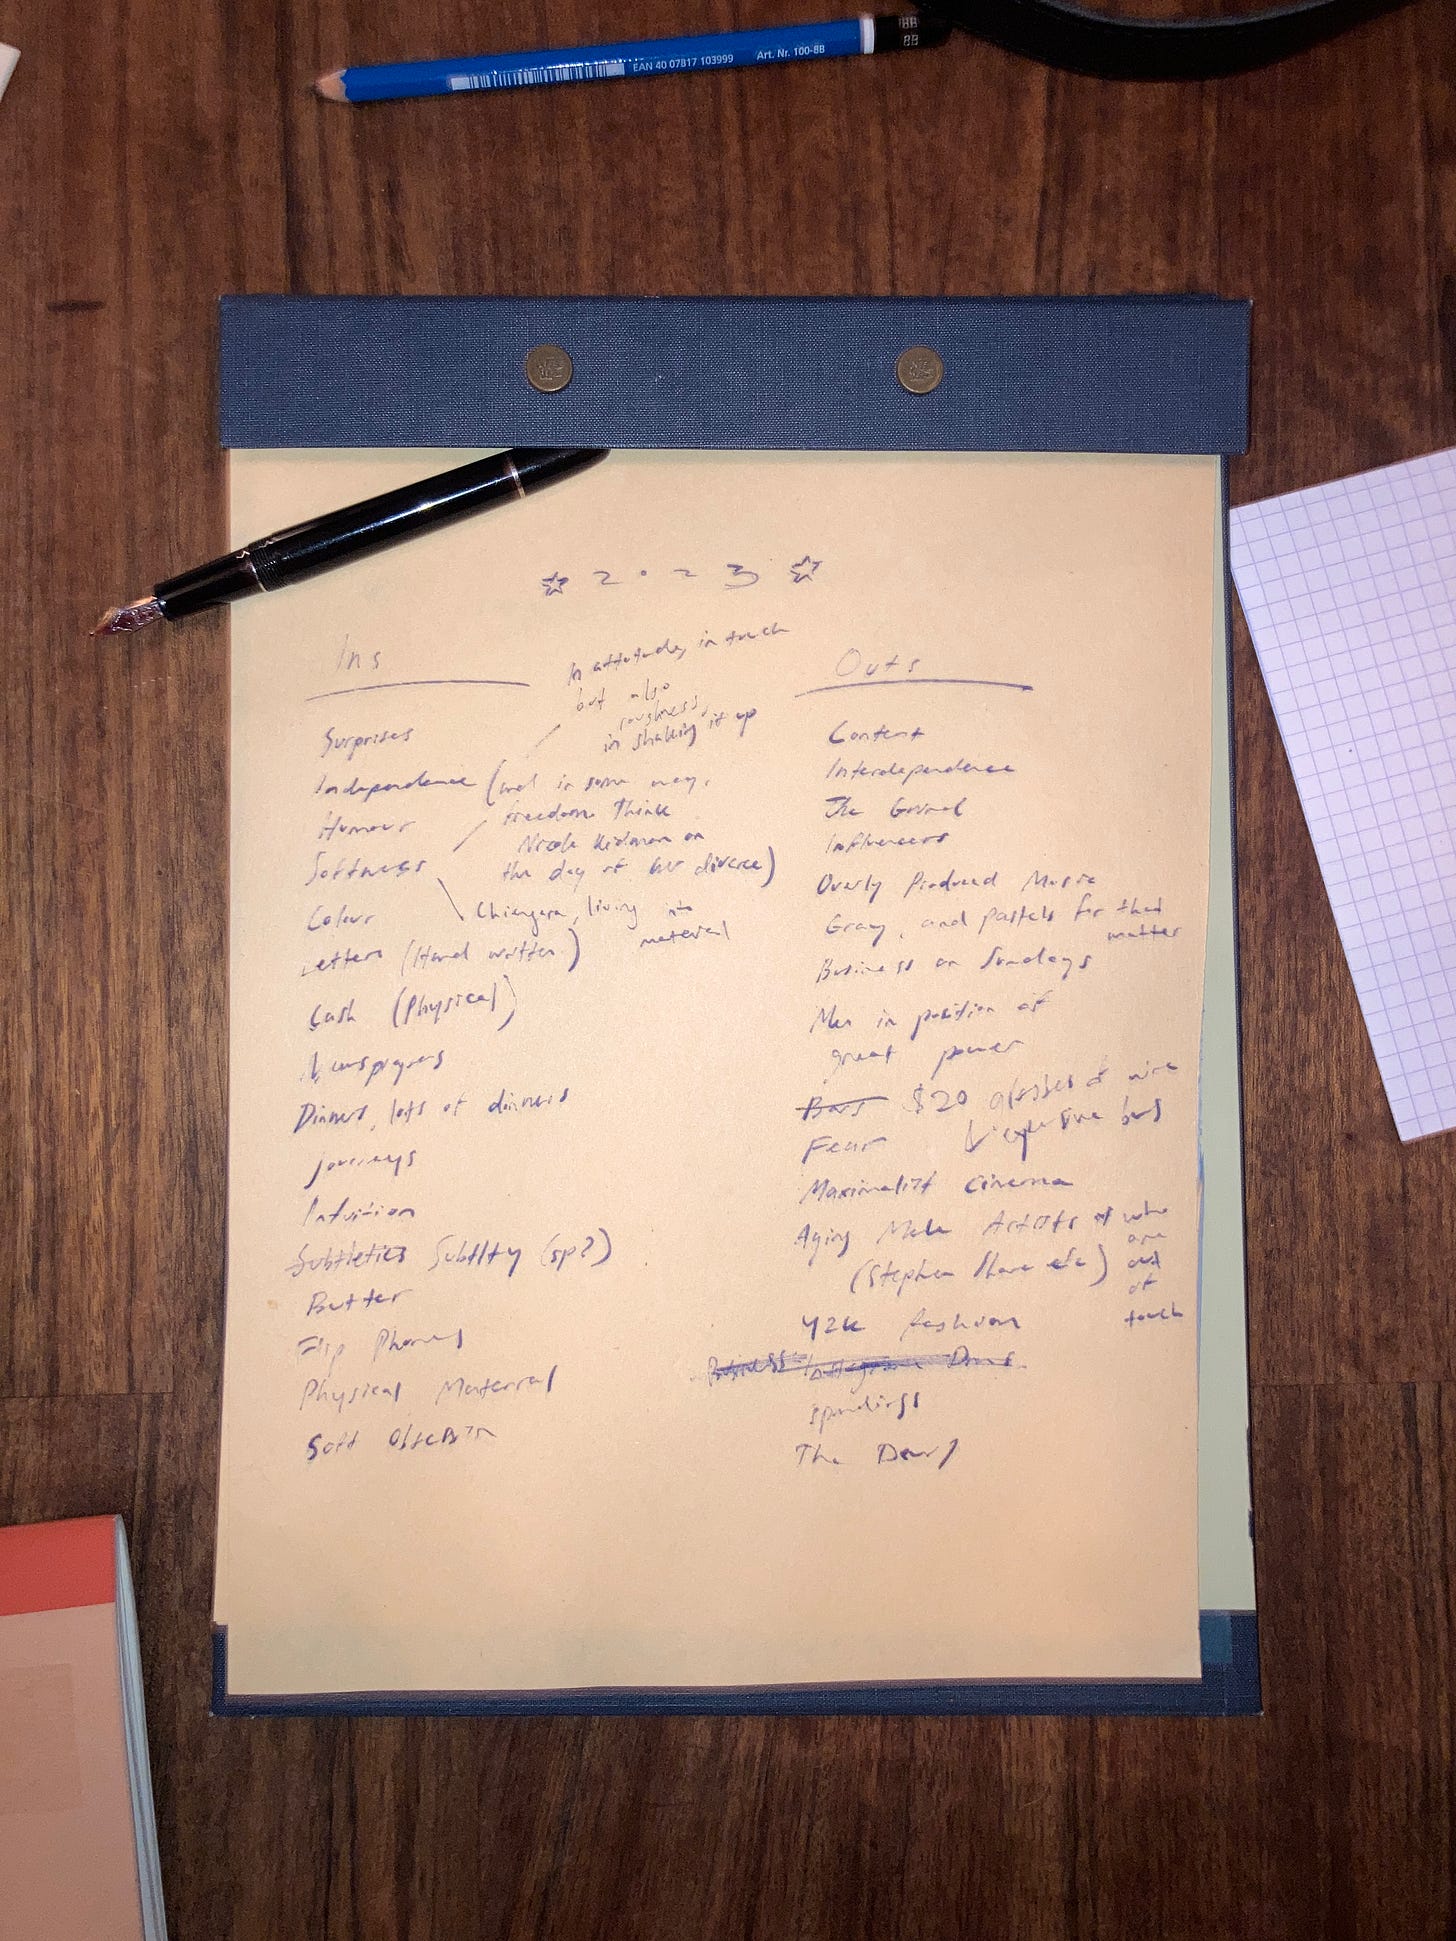 EAN 40 07817 103999 Art. Nr. 100-8B
8B
8B
☆ 2023 ☆
Ins
In attitude, in touch
but also
roughness,
in shaking it up
Surprises
Independence (and in some way,
freedom. Think
Nicole Kidman on
the day of her divorce)
Humour
Softness
Colour
living into
material
Letters (Hand written)
Cash (Physical)
Newspapers
Dinners, lots of dinners
Journeys
Intuition
Subtleties Subtlty (sp?)
Butter
Flip Phones
Physical Material
Soft
Outs
Content
Interdependence
The
Influencers
Overly Produced Music
Gray, and pastels for that
matter
Business on Sundays
Men in position of
great power
Bars $20 glasses of wine
expensive bars
Fear
Maximalist cinema
Aging Male Artists who
are
out
of
touch
(Stephen Shore etc)
Y2K fashion
Business
The